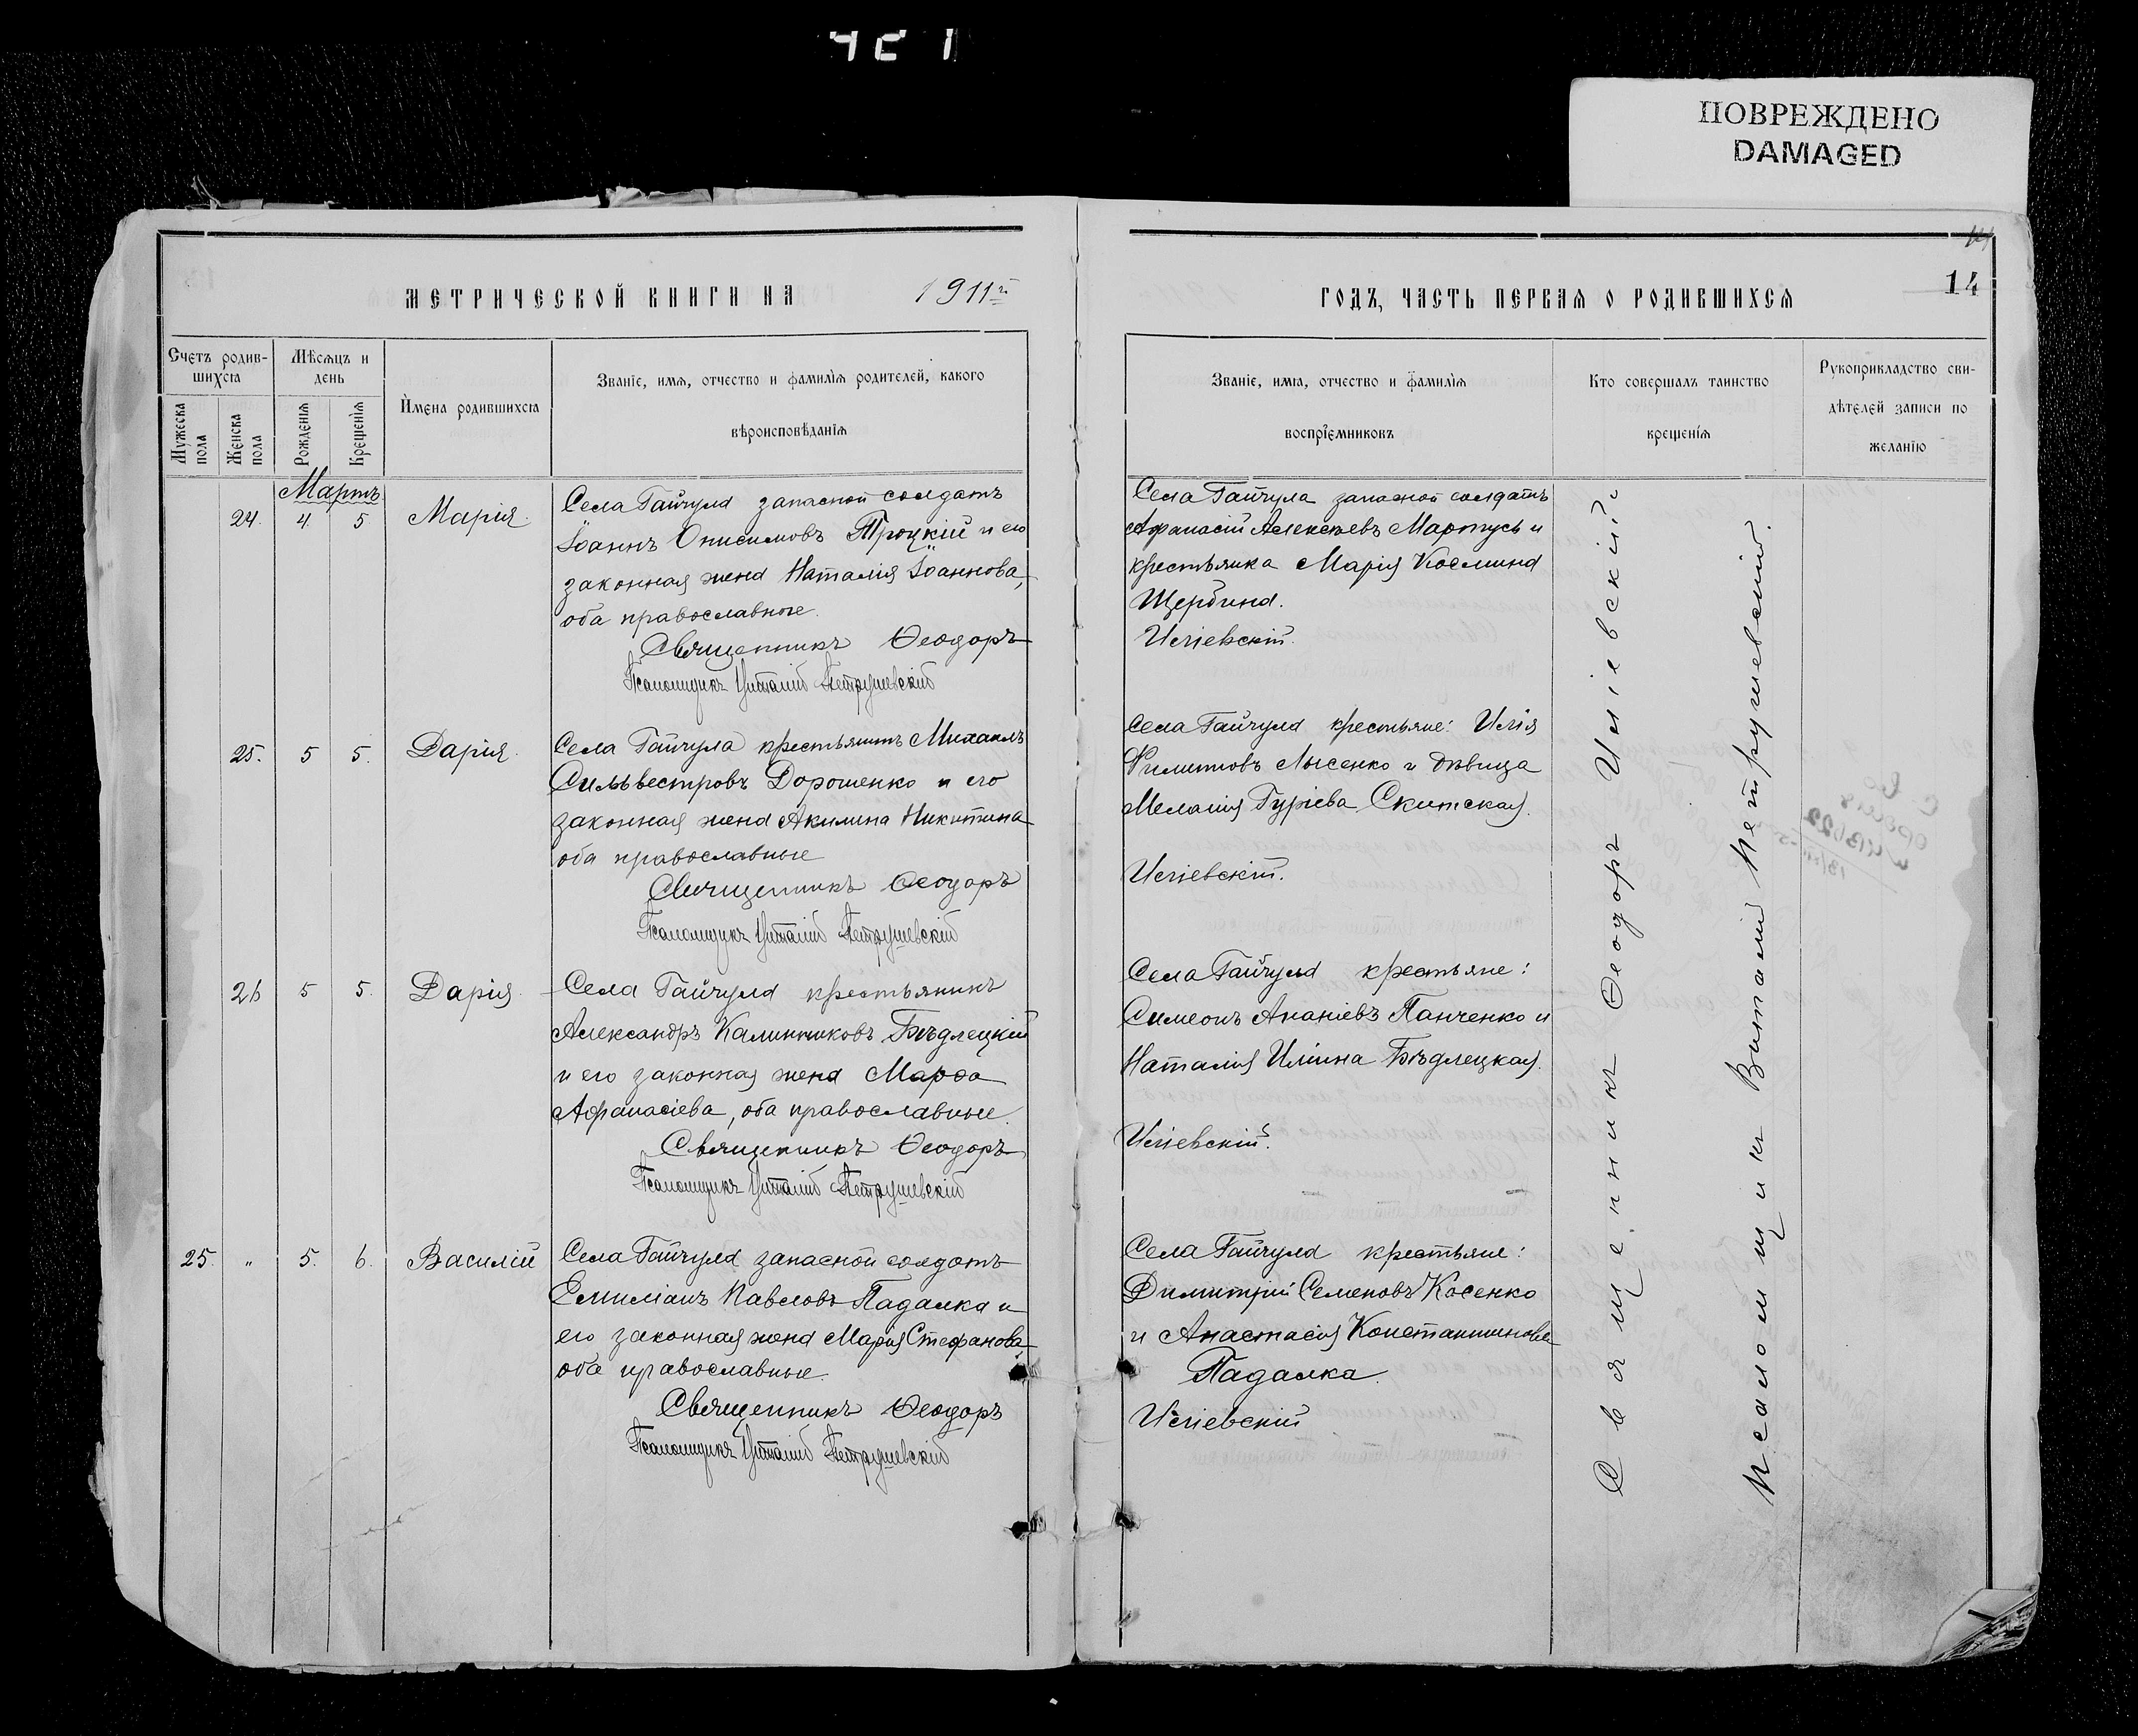 ПОВРЕЖДЕНО
DAMAGED
МЕТРИЧЕСКОЙ КНИГИ НА 1911й
Счетъ родив-
шихсѧ
Мѣсѧцъ и
день
Мужеска
пола
Женска
пола
Рожденїѧ
Крещенїѧ
Имена родившихсѧ
Званїе, имѧ, отчество и фамилїѧ родителей, какого
вѣроисповѣданїѧ
Мартъ
24. 4. 5. Марія.
Села Гайчула запасной солдатъ
Іоаннъ Онисимовъ Троцкій и его
законная жена Наталія Іоаннова,
оба православные.
Священникъ Ѳеодоръ
Псаломщикъ Виталій Петрушевскій
25. 5 5. Дарія.
Села Гайчула крестьянинъ Михаилъ
Сильвестровъ Дорошенко и его
законная жена Акилина Никитина
оба православные
Священникъ Ѳеодоръ
Псаломщикъ Виталій Петрушевскій
26 5 5. Дарія.
Села Гайчула крестьянинъ
Александръ Калинниковъ Бѣдлецкій
и его законная жена Марѳа
Афанасіева, оба православные.
Священникъ Ѳеодоръ
Псаломщикъ Виталій Петрушевскій
25. „ 5. 6. Василій
Села Гайчула запасной солдатъ
Емиліанъ Павловъ Падалка и
его законная жена Марія Стефанова,
оба православные.
Священникъ Ѳеодоръ
Псаломщикъ Виталій Петрушевскій
14
ГОДЪ, ЧАСТЬ ПЕРВАѦ О РОДИВШИХСѦ
Званїе, имѧ, отчество и фамилїѧ
воспрїемниковъ
Кто совершалъ таинство
крещенїѧ
Рукоприкладство сви-
дѣтелей записи по
желанїю
Села Гайчула запасной солдатъ
Афанасій Алексѣевъ Мартусь и
крестьянка Марія Космина
Щербина.
Иліевскій.
Села Гайчула крестьяне: Илія
Филиповъ Лысенко и дѣвица
Меланія Гуріева Скитская.
Иліевскій.
Села Гайчула крестьяне:
Симеонъ Ананіевъ Панченко и
Наталія Иліина Бѣдлецкая.
Иліевскій.
Села Гайчула крестьяне:
Димитрій Семеновъ Косенко
и Анастасія Константинова
Падалка.
Иліевскій
Священникъ Ѳеодоръ Иліевскій
Псаломщикъ Виталій Петрушевскій.